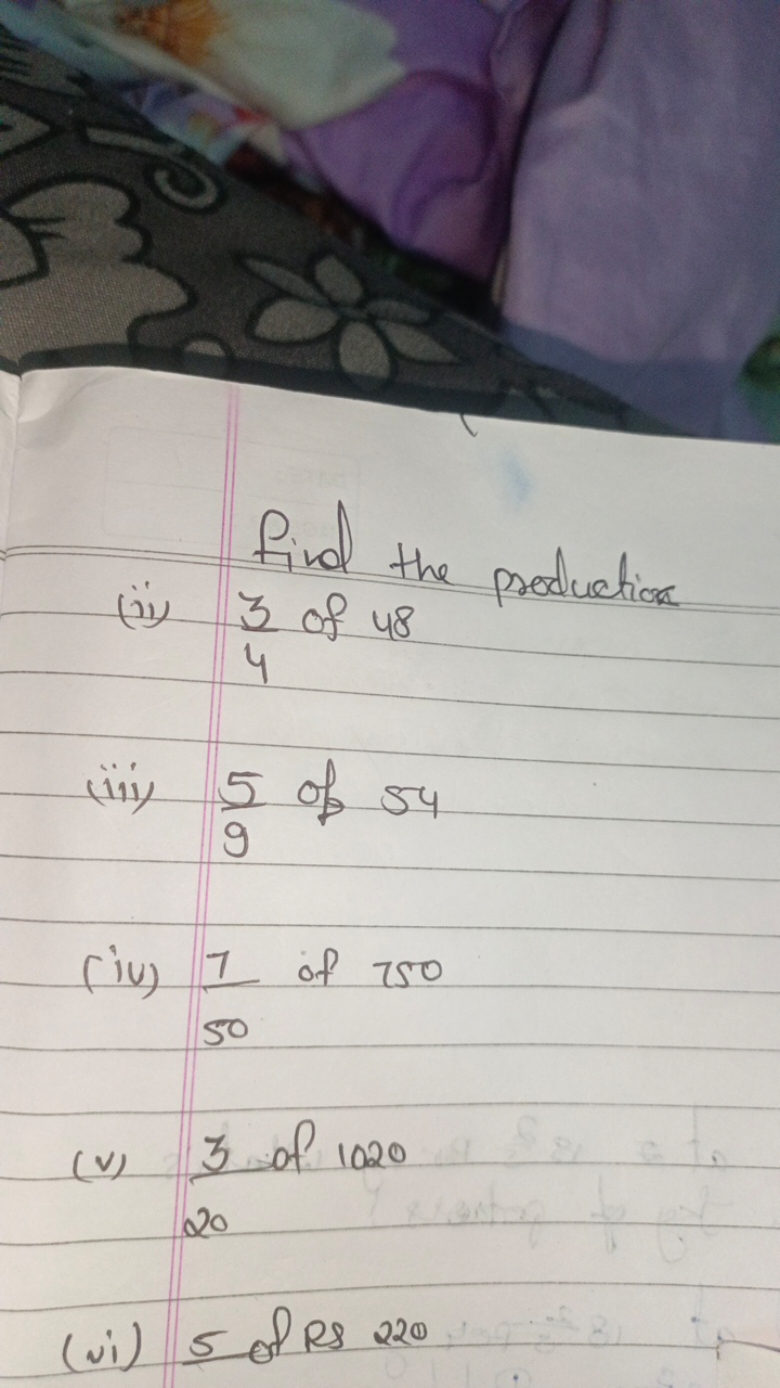 find the production
(ii) 3/4 of 48
(iii) 5/9 of 54
(iv) 7/50 of 750
(v) 3/20 of 1020
(vi) 5 of RS 220